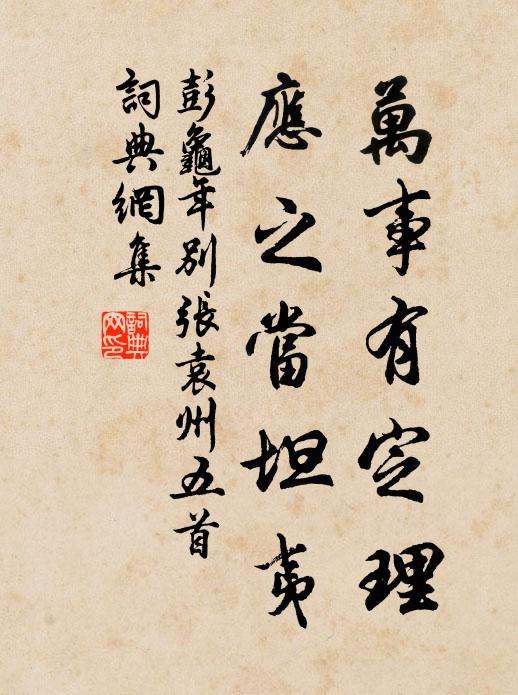 萬事有定理
應之當坦夷
彭龜年別張袁州五首
詞典網集
詞典
网印